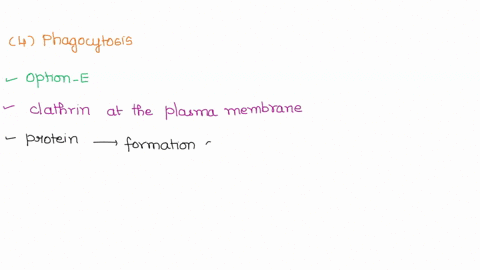 (4) Phagocytosis
✓ option-E
✓ clathrin at the plasma membrane
✓ protein → formation